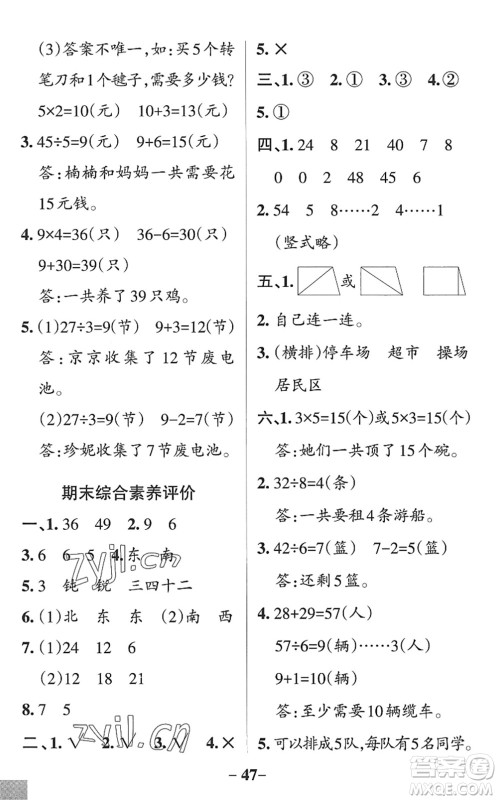 (3)答案不唯一,如:买5个转
笔刀和1个毽子,需要多少钱?
5×2=10(元) 10+3=13(元)
3. 45÷5=9(元) 9+6=15(元)
答:楠楠和妈妈一共需要花
15元钱。
4. 9×4=36(只) 36-6=30(只)
9+30=39(只)
答:一共养了39只鸡。
5. (1)27÷3=9(节) 9+3=12(节)
答:京京收集了12节废电
池。
(2)27÷3=9(节) 9-2=7(节)
答:珍妮收集了7节废电池。
期末综合素养评价
一、1. 36 49 2. 9 6
3. 6 6 5 4. 东 南
5. 3 钝 锐 三四十二
6. (1)北 东 东 (2)南 西
7. (1)24 12
(2)18 12
8. 7 5
二、1. √ 2. √ 3. √ 4. ×
5. ×
三、1. ③ 2. ① 3. ③ 4. ②
5. ①
四、1. 24 8 21 40 7 8
0 0 2 48 6 8
2. 54 5 8……2 4……1
(竖式略)
五、1. 或
2. 自己连一连。
3. (横排)停车场 超市 操场
居民区
六、1. 3×5=15(个)或5×3=15(个)
答:她们一共顶了15个碗。
2. 32÷8=4(条)
答:一共要租4条游船。
3. 42÷6=7(篮) 7-2=5(篮)
答:还剩5篮。
4. 28+29=57(人)
57÷6=9(辆)……3(人)
9+1=10(辆)
答:至少需要10辆缆车。
5. 可以排成5队,每队有5名同学。
-47-
zyjl.cn
zyjl.cn
答案圈